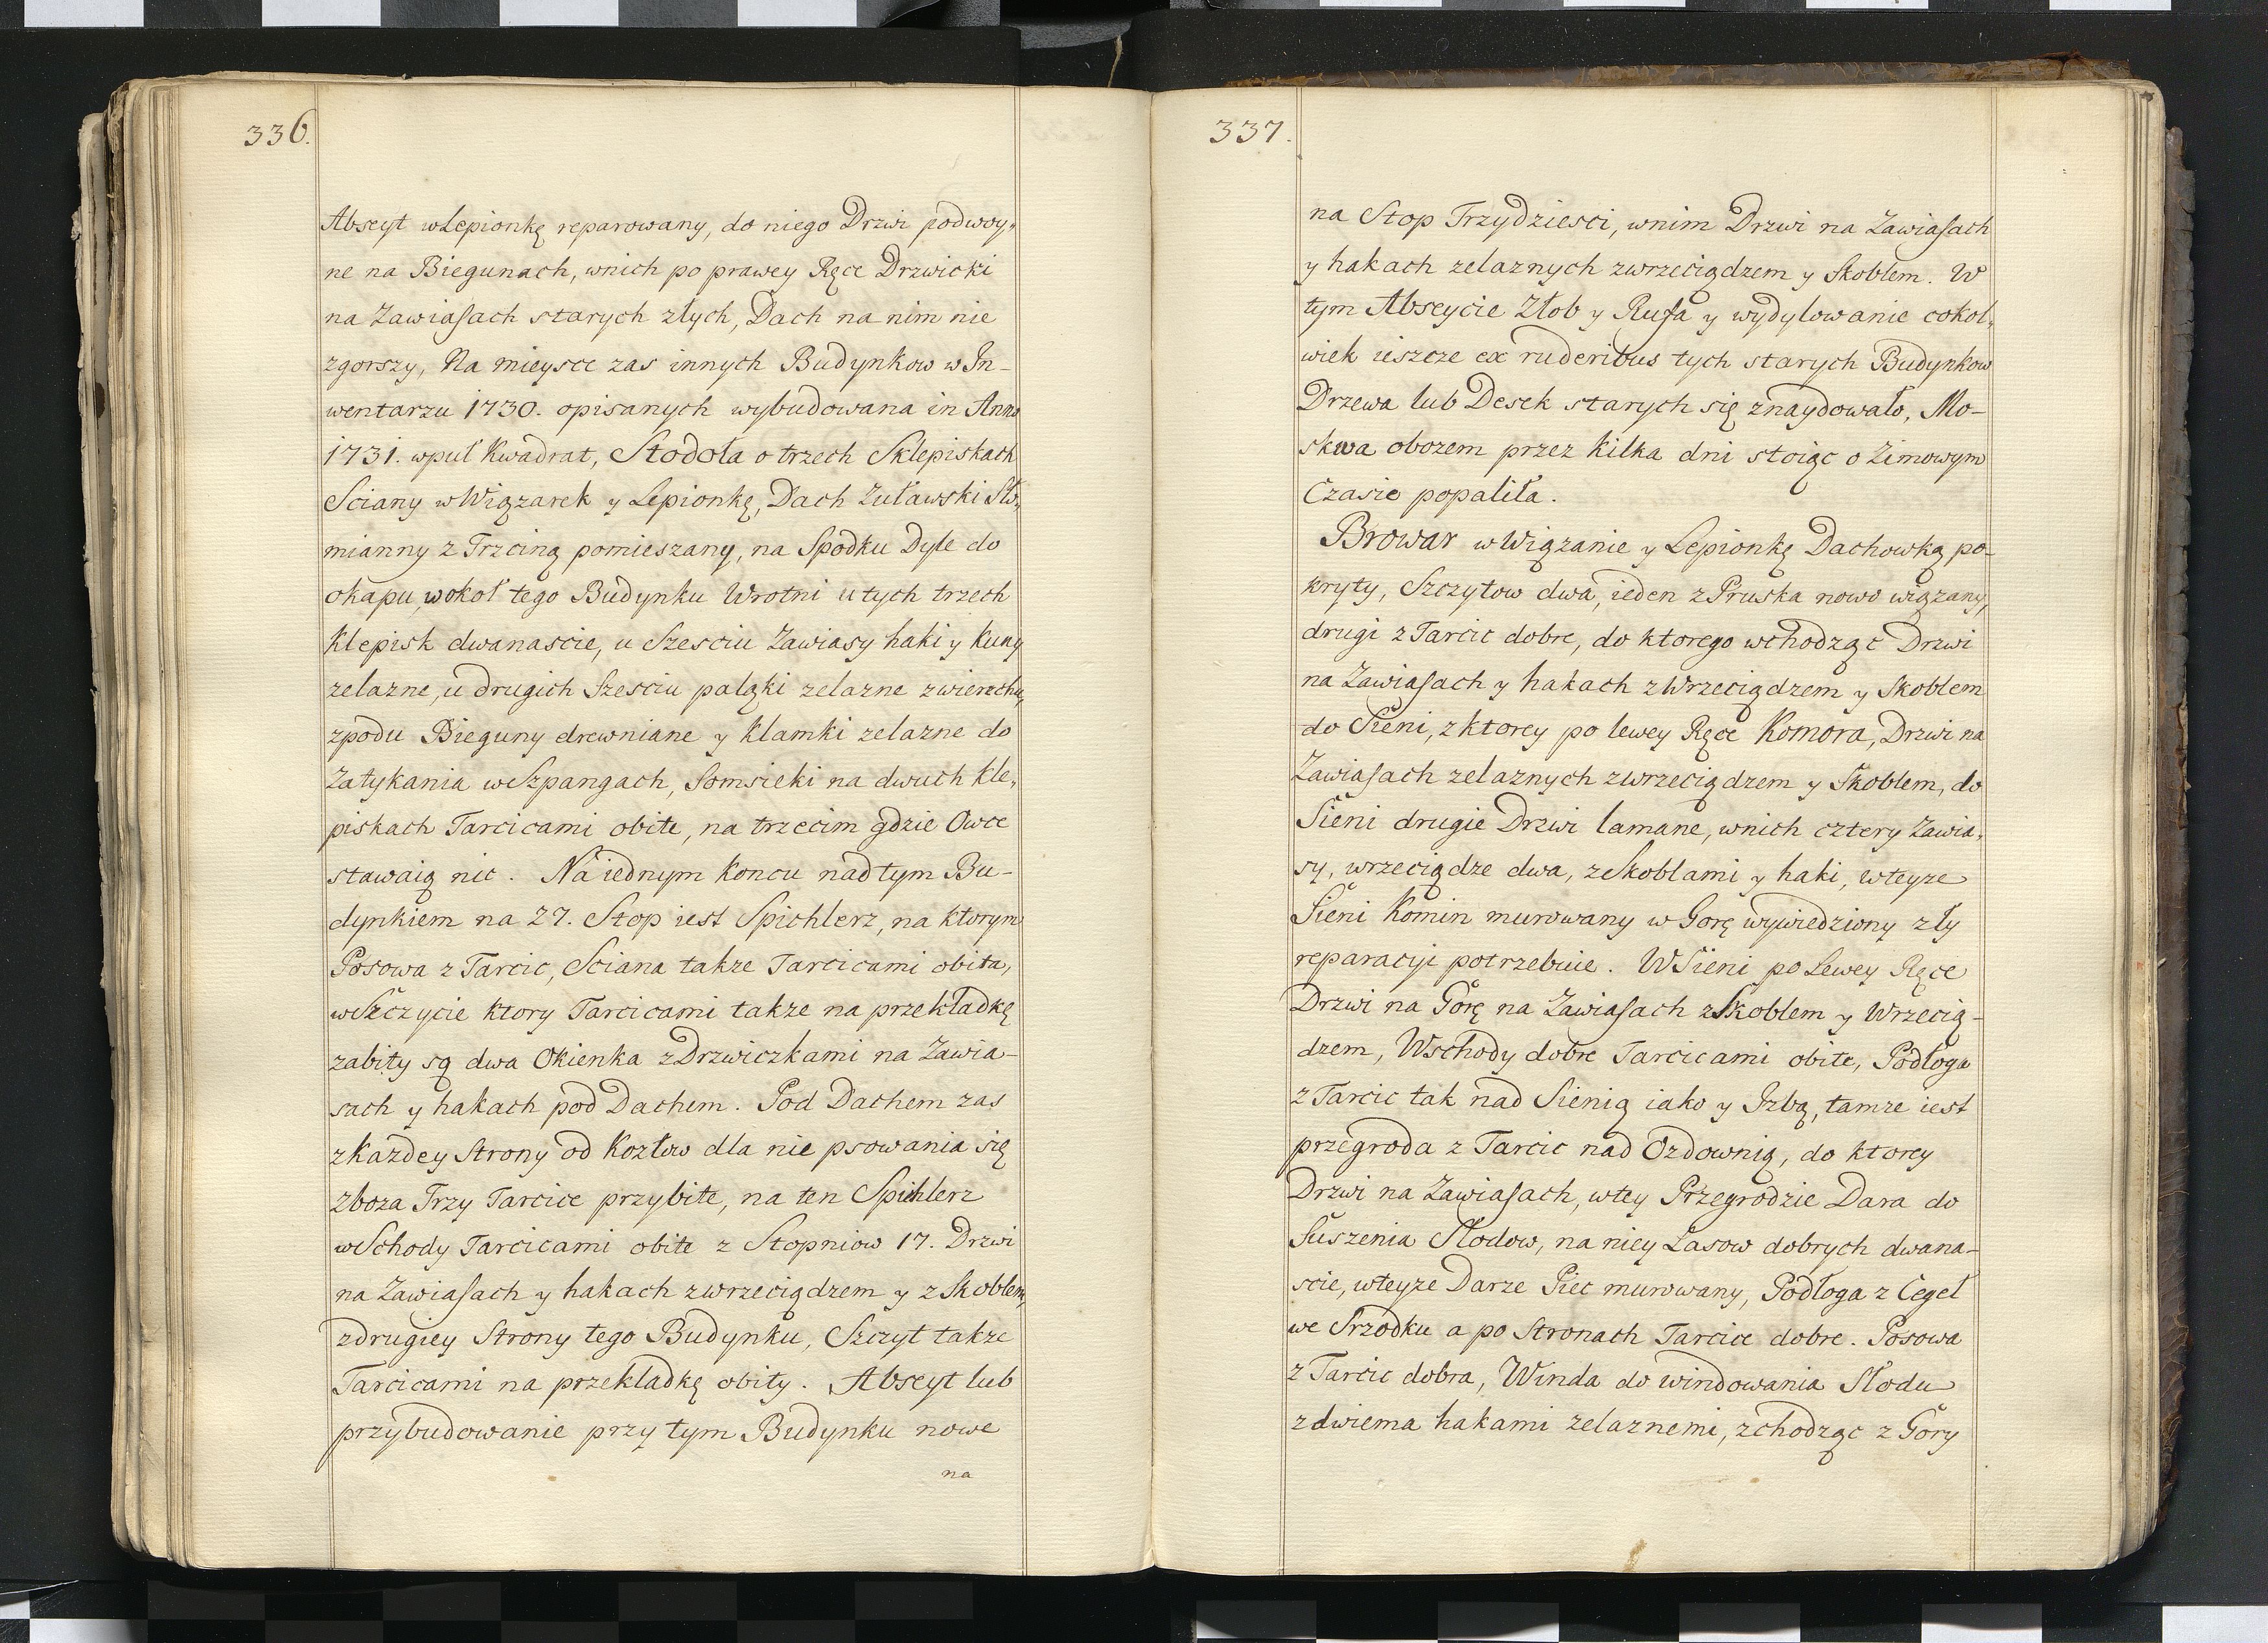 336.
Abseyt w Lepionkę reparowany, do niego Drzwi podwoy„
ne na Biegunach, wnich po prawey Ręce Drzwicki
na Zawiasach starych złych, Dach na nim nie
zgorszy, Na mieysce zas innych Budynkow w In-
wentarzu 1730. opisanych wybudowana in Anno
1731. wpuł Kwadrat, Stodoła o trzech Sklepiskach
Sciany w Wiązarek y Lepionkę, Dach Zuławski Sło„
mianny z Trzciną pomieszany, na Spodku Dyle do
okapu, wokoł tego Budynku Wrotni u tych trzech
Klepisk dwanascie, u Szesciu Zawiasy haki y Kuny
zelazne, u drugich Szesciu paląki zelazne zwierzchu,
zpodu Bieguny drewniane y Klamki zelazne do
Zatykania w Szpangach, Somsieki na dwuch Kle„
piskach Tarcicami obite, na trzecim gdzie Owce
stawaią nic. Na iednym Koncu nad tym Bu-
dynkiem na 27. Stop iest Spichlerz, na ktorym
Posowa z Tarcic, Sciana takze Tarcicami obita,
w Szczycie ktory Tarcicami takze na przekładkę
zabity są dwa Okienka z Drzwiczkami na Zawia-
sach y hakach pod Dachem. Pod Dachem zas
zkazdey Strony od Kozłow dla nie psowania się
zboza Trzy Tarcice przybite, na ten Spichlerz
wSchody Tarcicami obite z Stopniow 17. Drzwi
na Zawiasach y hakach zwrzeciądzem y z Skoblem,
zdrugiey Strony tego Budynku, Szczyt takze
Tarcicami na przekladkę obity. Abseyt lub
przybudowanie przy tym Budynku nowe
na
337.
na Stop Trzydziesci, wnim Drzwi na Zawiasach
y hakach zelaznych zwrzeciądzem y Skoblem. W
tym Abseycie Złob y Rufa y wydylowanie cokol„
wiek ieszcze ex ruderibus tych starych Budynkow
Drzewa lub Desek starych się znaydowało, Mo-
skwa obozem przez kilka dni stoiąc o Zimowym
Czasie popaliła.
Browar w Wiązanie y Lepionkę Dachowką po-
kryty, Szczytow dwa, ieden z Pruska nowo wiązany,
drugi z Tarcic dobre, do ktorego wchodząc Drzwi
na Zawiasach y hakach z Wrzeciądzem y Skoblem
do Sieni, z ktorey po lewey Ręce Komora, Drzwi na
Zawiasach zelaznych zwrzeciądzem y Skoblem, do
Sieni drugie Drzwi lamane, wnich cztery Zawia„
sy, wrzeciądze dwa, z Skoblami y haki, wteyze
Sieni Komin murowany w Gorę wywiedziony zły
reparacyi potrzebuie. W Sieni po Lewey Ręce
Drzwi na Gorę na Zawiasach z Skoblem y Wrzecią-
dzem, Wschody dobre Tarcicami obite, Podłoga
z Tarcic tak nad Sienią iako y Izbą, tamze iest
przegroda z Tarcic nad Ozdownią, do ktorey
Drzwi na Zawiasach, wtey Przegrodzie Dara do
Suszenia Słodow, na niey Lasow dobrych dwana-
scie, wteyze Darze Piec murowany, Podłoga z Cegeł
we Srzodku a po Stronach Tarcice dobre. Posowa
z Tarcic dobra, Winda do windowania Słodu
zdwiema hakami zelaznemi, zchodząc z Gory